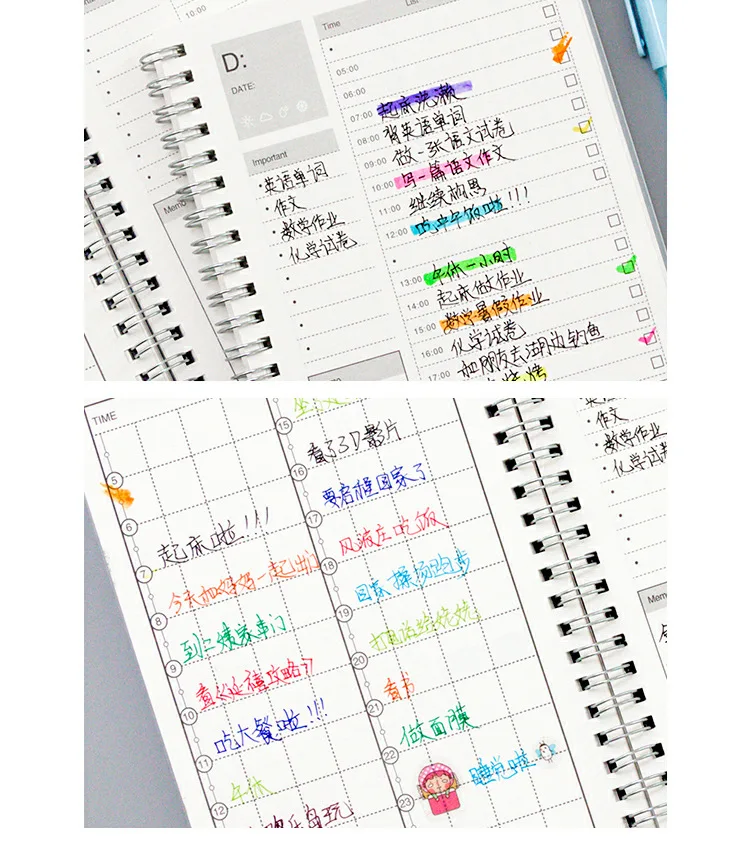 10:00
Time
List
D:
DATE:
05:00
06:00
07:00 起床洗漱
08:00 背英语单词
09:00 做一张语文试卷
10:00 写一篇语文作文
11:00 继续构思
12:00 吃中午饭啦!!!
13:00 午休一小时
14:00 起床做作业
15:00 数学暑假作业
16:00 化学试卷
17:00 和朋友去湖边钓鱼
烧烤
Important
·英语单词
·作文
·数学作业
·化学试卷
Memo
TIME
5
6
7 起床啦!!!
8 今天和妈妈一起出门
9 到二姨家串门
10 看《延禧攻略》
11 吃大餐啦!!!
12 午休
欢乐岛玩
15
16 看了3D影片
17 要启程回家了
18 风波庄吃饭
19 回家操场跑步
20
21 看书
22 做面膜
23 睡觉啦
·作文
·数学作业
·化学试卷
Memo